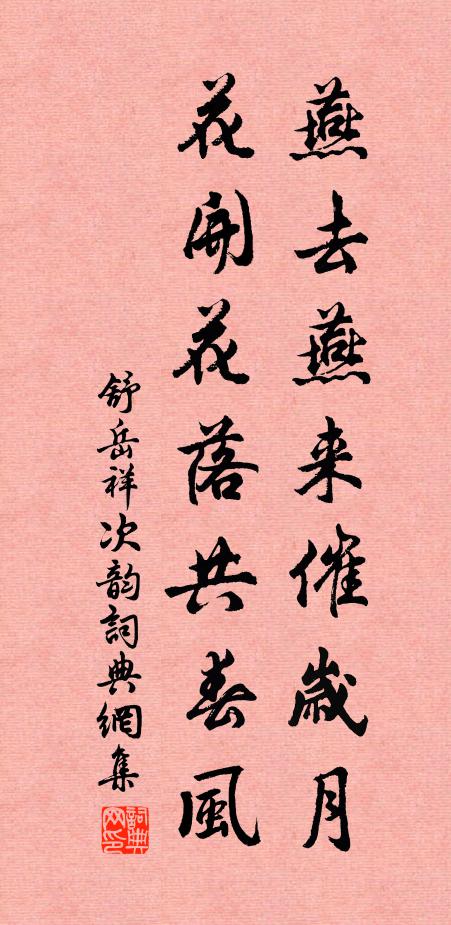 燕去燕来催歲月
花開花落共春風
舒岳祥次韵詞典網集
詞典网印